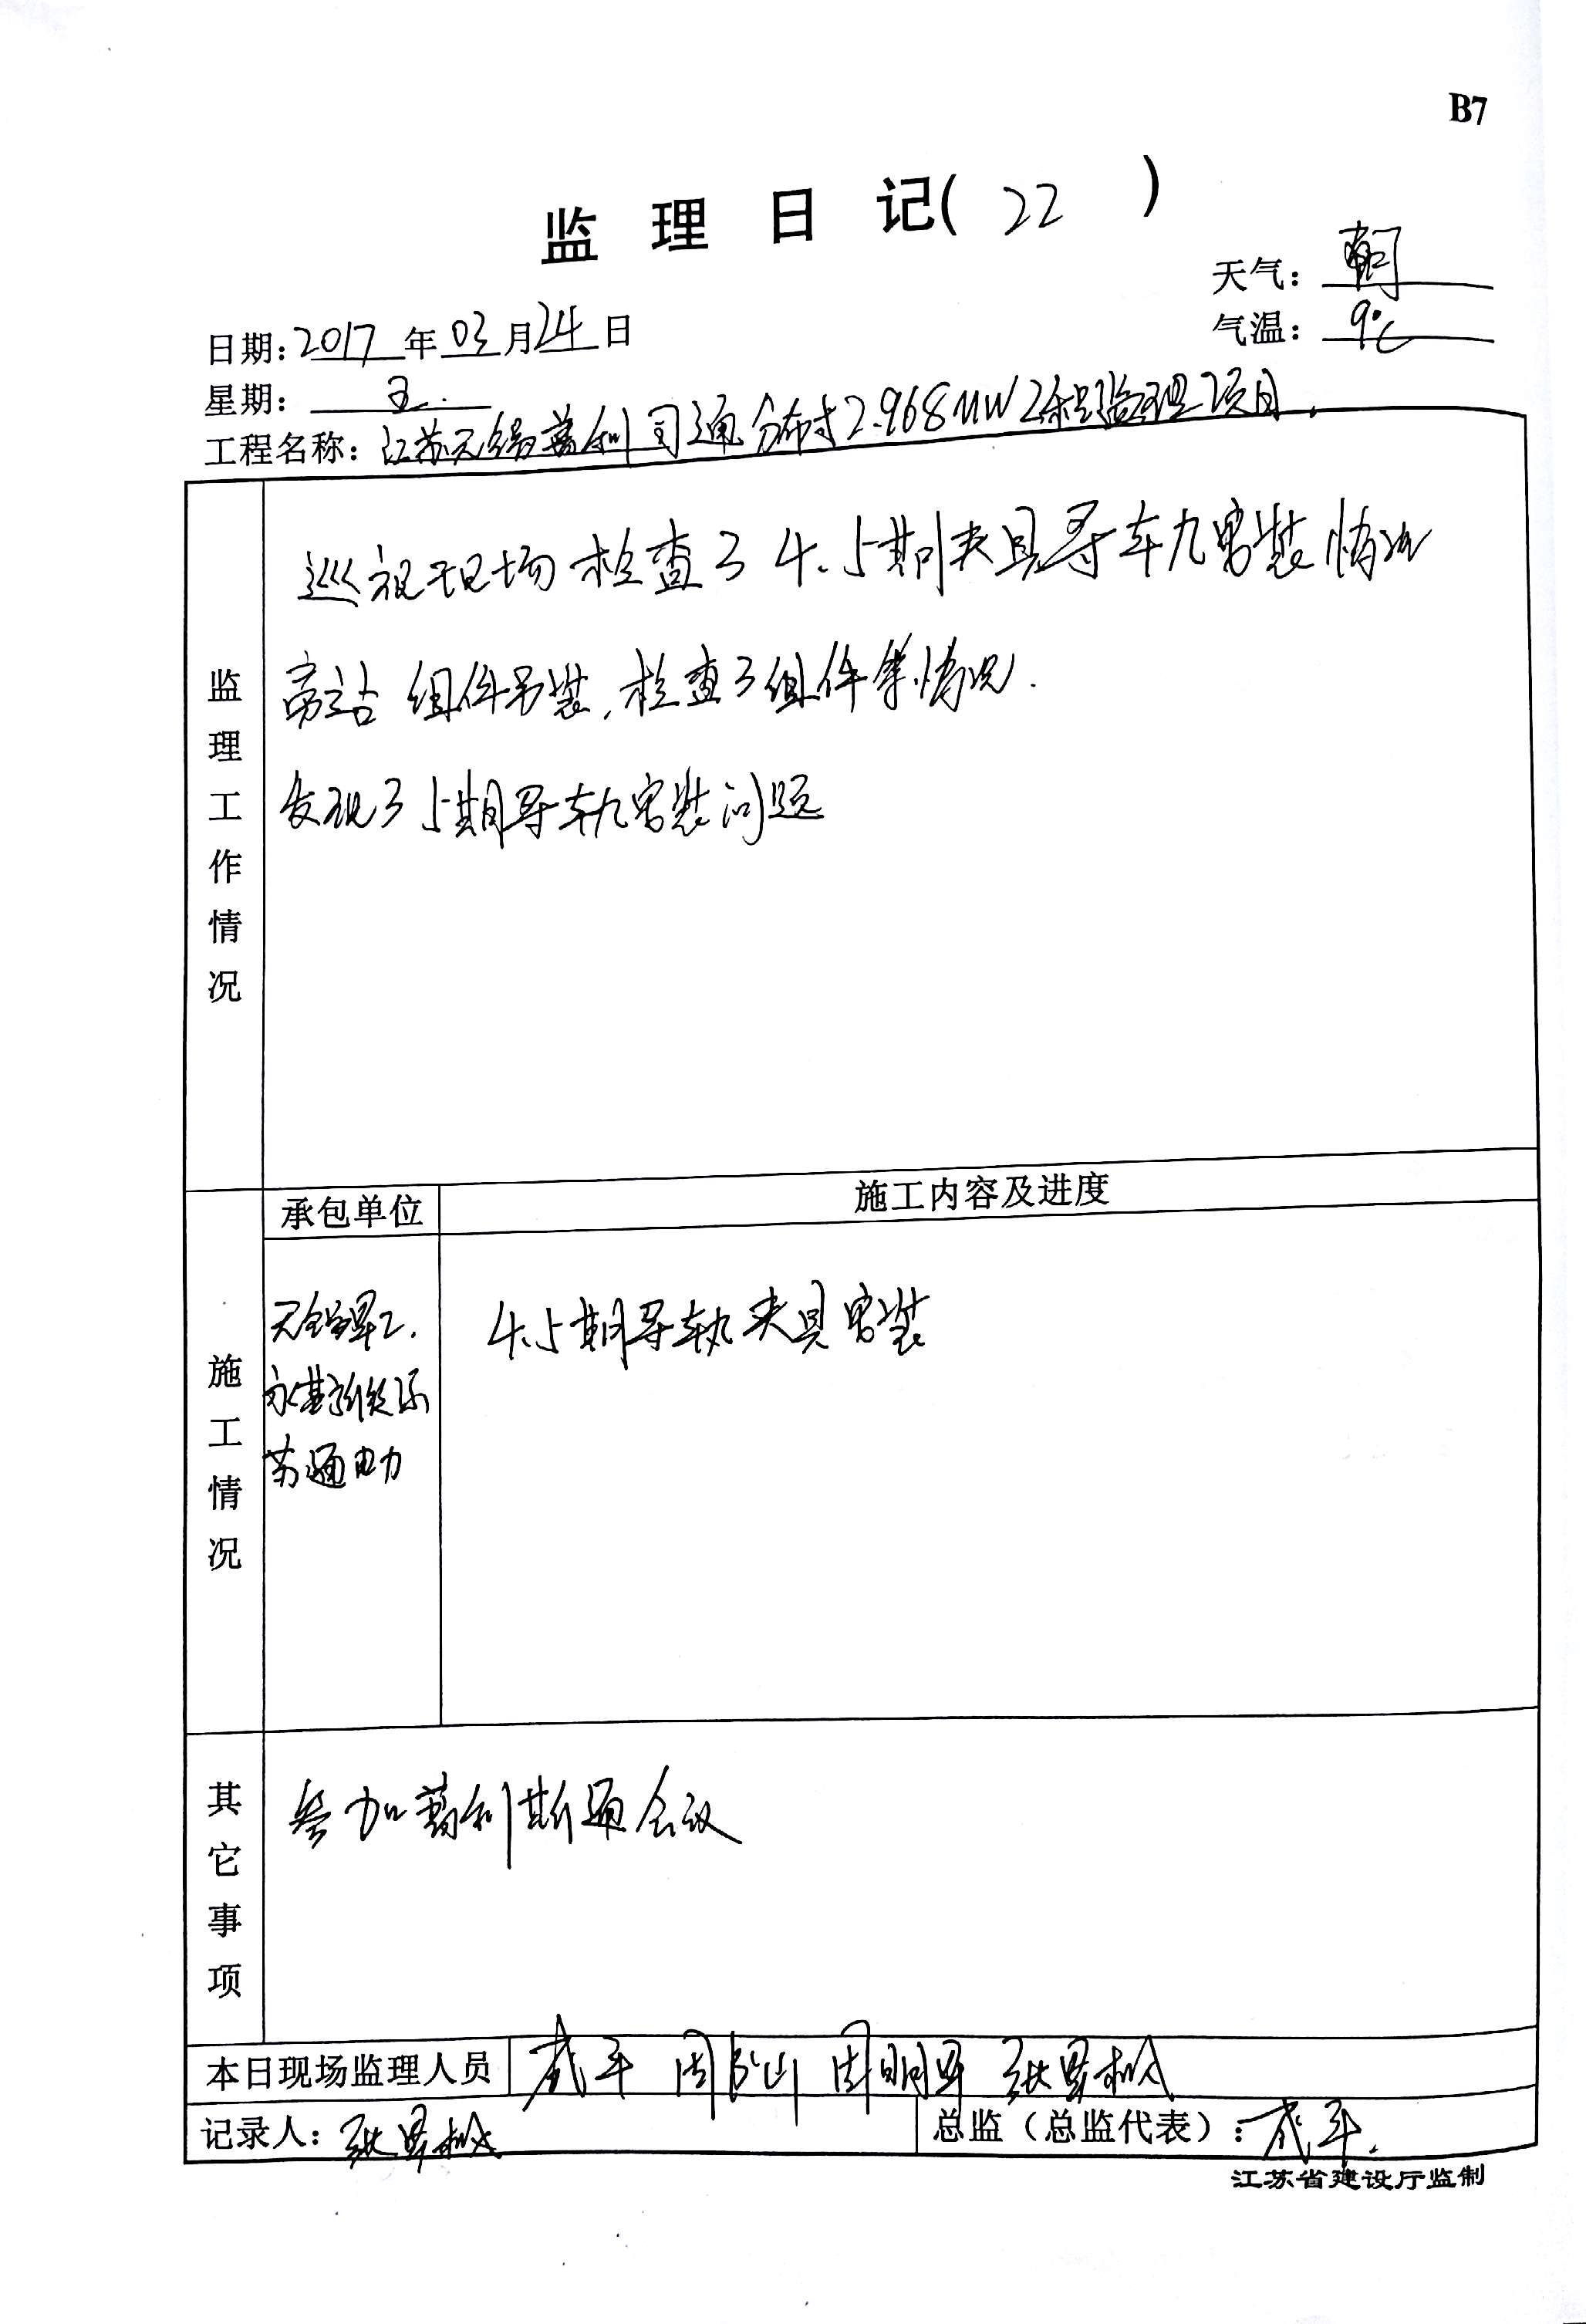 B7
监理日记(22)
天气：
气温：9℃
日期：2017年03月24日
星期：五.
工程名称：江苏无锡葛利司通分布式2.968MW工程监理项目.
监理工作情况
巡视现场检查了4.5期夹具导轨安装情况
旁站组件吊装,检查了组件等情况.
发现了5期导轨安装问题
承包单位
施工内容及进度
施工情况
4.5期导轨夹具安装
苏通电力
其它事项
参加葛利斯通会议
本日现场监理人员
记录人：
总监（总监代表）：
江苏省建设厅监制